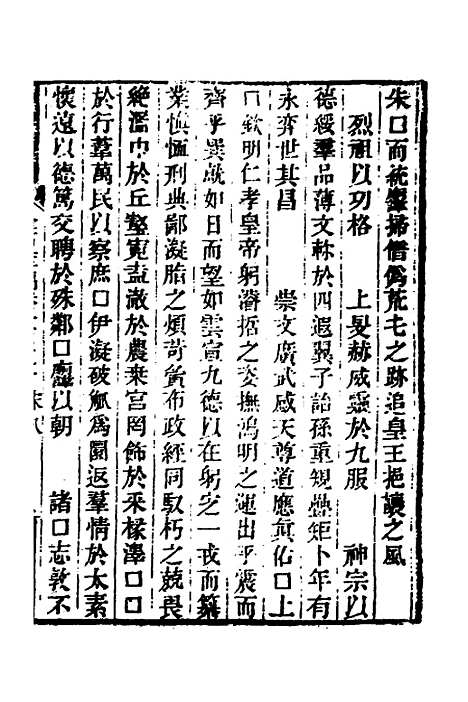 朱□而統盤掃僭僞荒屯之跡追皇王挹讓之風
烈祖以功格　上旻赫威靈於九服　神宗以
德綏羣品薄文軫於四遐翼子詒孫重規疊矩卜年有
永弈世其昌　崇文廣武感天尊道應眞佑□上
□欽明仁孝皇帝躬濬哲之姿撫鴻明之運出乎震而
齊乎巽就如日而望如雲宣九德以在躬定之一戎而纂
業愼恤刑典鄙凝脂之煩苛賁布政經同馭朽之兢畏
絶濫巾於丘壑寅盍澂於農桒宮罔飾於采椽澤□□
於行葦萬民以察庶□伊凝破觚爲圜返羣情於太素
懷遠以德篤交聘於殊鄰□以朝　諸□志敦不